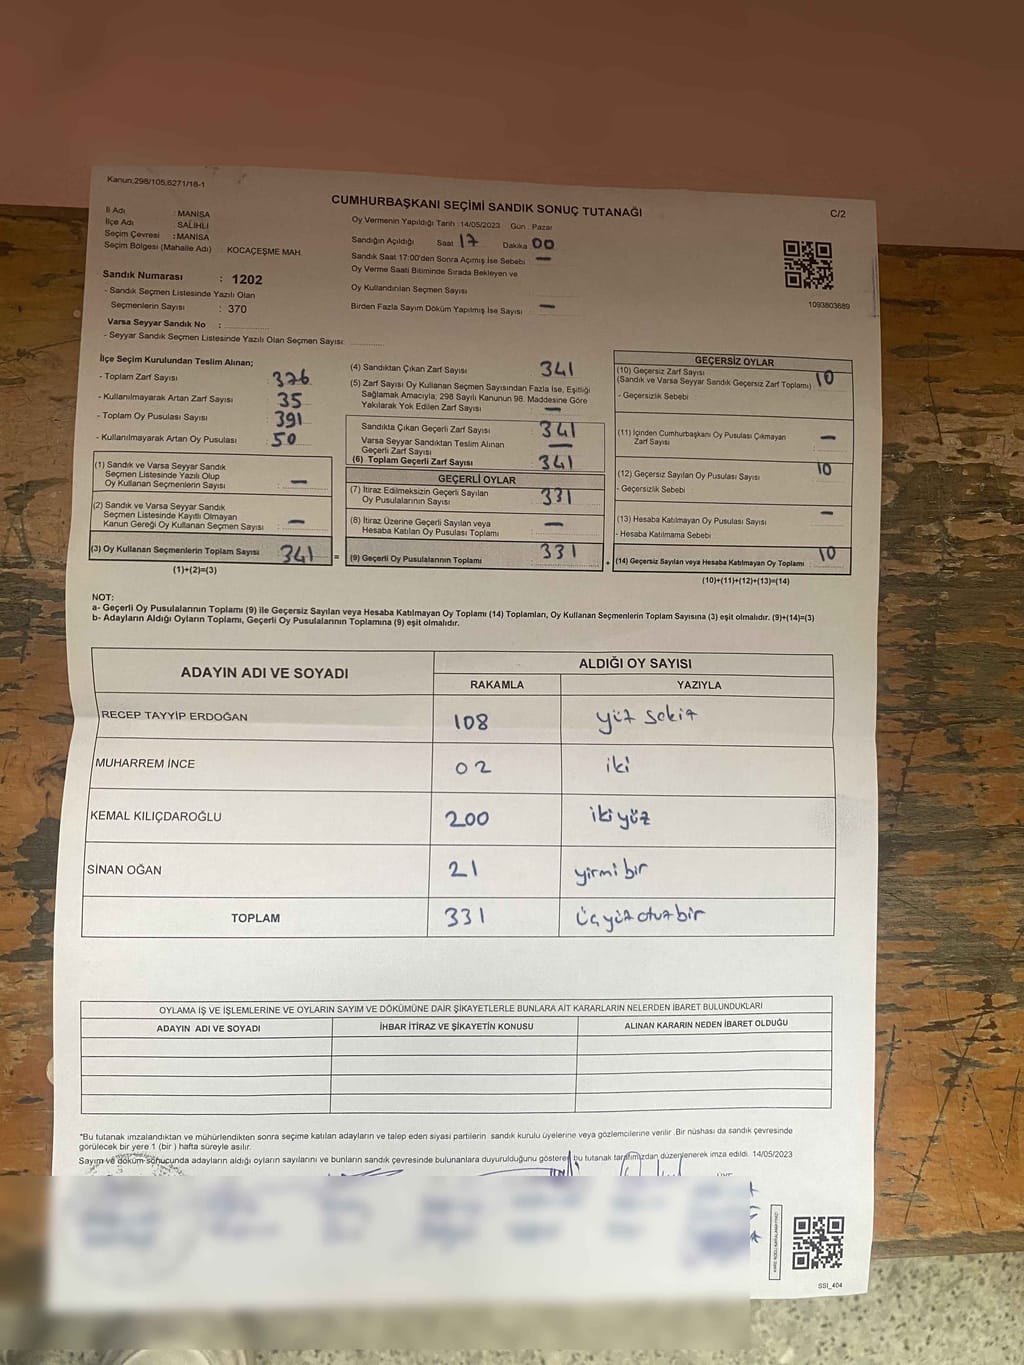 Kanun:298/105,6271/18-1
CUMHURBAŞKANI SEÇİMİ SANDIK SONUÇ TUTANAĞI
C/2
İl Adı : MANİSA
İlçe Adı : SALİHLİ
Seçim Çevresi : MANİSA
Seçim Bölgesi (Mahalle Adı) : KOCAÇEŞME MAH.
Oy Vermenin Yapıldığı Tarih :14/05/2023 Gün : Pazar
Sandığın Açıldığı Saat 17 Dakika 00
Sandık Saat 17:00'den Sonra Açımış İse Sebebi : —
Oy Verme Saati Bitiminde Sırada Bekleyen ve
Oy Kullandırılan Seçmen Sayısı
Birden Fazla Sayım Döküm Yapılmış İse Sayısı : —
1093803689
Sandık Numarası : 1202
- Sandık Seçmen Listesinde Yazılı Olan
Seçmenlerin Sayısı : 370
Varsa Seyyar Sandık No :
- Seyyar Sandık Seçmen Listesinde Yazılı Olan Seçmen Sayısı:
İlçe Seçim Kurulundan Teslim Alınan;
- Toplam Zarf Sayısı : 376
- Kullanılmayarak Artan Zarf Sayısı : 35
- Toplam Oy Pusulası Sayısı : 391
- Kullanılmayarak Artan Oy Pusulası : 50
(1) Sandık ve Varsa Seyyar Sandık
Seçmen Listesinde Yazılı Olup
Oy Kullanan Seçmenlerin Sayısı : —
(2) Sandık ve Varsa Seyyar Sandık
Seçmen Listesinde Kayıtlı Olmayan
Kanun Gereği Oy Kullanan Seçmen Sayısı : —
(3) Oy Kullanan Seçmenlerin Toplam Sayısı : 341
(1)+(2)=(3)
=
(4) Sandıktan Çıkan Zarf Sayısı : 341
(5) Zarf Sayısı Oy Kullanan Seçmen Sayısından Fazla İse, Eşitliği
Sağlamak Amacıyla; 298 Sayılı Kanunun 98. Maddesine Göre
Yakılarak Yok Edilen Zarf Sayısı : —
Sandıkta Çıkan Geçerli Zarf Sayısı : 341
Varsa Seyyar Sandıktan Teslim Alınan
Geçerli Zarf Sayısı : —
(6) Toplam Geçerli Zarf Sayısı : 341
GEÇERLİ OYLAR
(7) İtiraz Edilmeksizin Geçerli Sayılan
Oy Pusulalarının Sayısı : 331
(8) İtiraz Üzerine Geçerli Sayılan veya
Hesaba Katılan Oy Pusulası Toplamı : —
(9) Geçerli Oy Pusulalarının Toplamı : 331
+
GEÇERSİZ OYLAR
(10) Geçersiz Zarf Sayısı
(Sandık ve Varsa Seyyar Sandık Geçersiz Zarf Toplamı) : 10
- Geçersizlik Sebebi
(11) İçinden Cumhurbaşkanı Oy Pusulası Çıkmayan
Zarf Sayısı : —
(12) Geçersiz Sayılan Oy Pusulası Sayısı : 10
- Geçersizlik Sebebi
(13) Hesaba Katılmayan Oy Pusulası Sayısı : —
- Hesaba Katılmama Sebebi
(14) Geçersiz Sayılan veya Hesaba Katılmayan Oy Toplamı : 10
(10)+(11)+(12)+(13)=(14)
NOT:
a- Geçerli Oy Pusulalarının Toplamı (9) ile Geçersiz Sayılan veya Hesaba Katılmayan Oy Toplamı (14) Toplamları, Oy Kullanan Seçmenlerin Toplam Sayısına (3) eşit olmalıdır. (9)+(14)=(3)
b- Adayların Aldığı Oyların Toplamı, Geçerli Oy Pusulalarının Toplamına (9) eşit olmalıdır.
ADAYIN ADI VE SOYADI ALDIĞI OY SAYISI
RAKAMLA YAZIYLA
RECEP TAYYİP ERDOĞAN 108 yüz sekiz
MUHARREM İNCE 02 iki
KEMAL KILIÇDAROĞLU 200 ikiyüz
SİNAN OĞAN 21 yirmi bir
TOPLAM 331 üçyüzotuzbir
OYLAMA İŞ VE İŞLEMLERİNE VE OYLARIN SAYIM VE DÖKÜMÜNE DAİR ŞİKAYETLERLE BUNLARA AİT KARARLARIN NELERDEN İBARET BULUNDUKLARI
ADAYIN ADI VE SOYADI İHBAR İTİRAZ VE ŞİKAYETİN KONUSU ALINAN KARARIN NEDEN İBARET OLDUĞU
*Bu tutanak imzalandıktan ve mühürlendikten sonra seçime katılan adayların ve talep eden siyasi partilerin sandık kurulu üyelerine veya gözlemcilerine verilir .Bir nüshası da sandık çevresinde
görülecek bir yere 1 (bir ) hafta süreyle asılır.
Sayım ve döküm sonucunda adayların aldığı oyların sayılarını ve bunların sandık çevresinde bulunanlara duyurulduğunu gösteren bu tutanak tarafımızdan düzenlenerek imza edildi. 14/05/2023
SSI_404